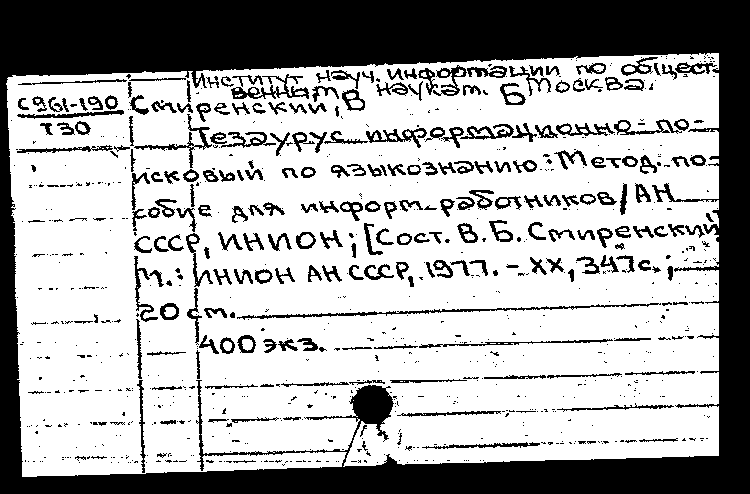 Институт науч. информации по общест-
венным наукам. Москва.
С961-190 Смиренский, В Б
Т30
Тезаурус информационно-по-
исковый по языкознанию: Метод. по-
собие для информ. работников/АН
СССР, ИНИОН; [Сост. В. Б. Смиренский]
М.: ИНИОН АН СССР, 1977. - XX, 347с.;
20 см.
400 экз.